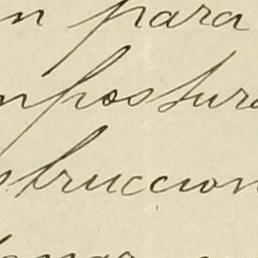 n para
mpostura
strucción